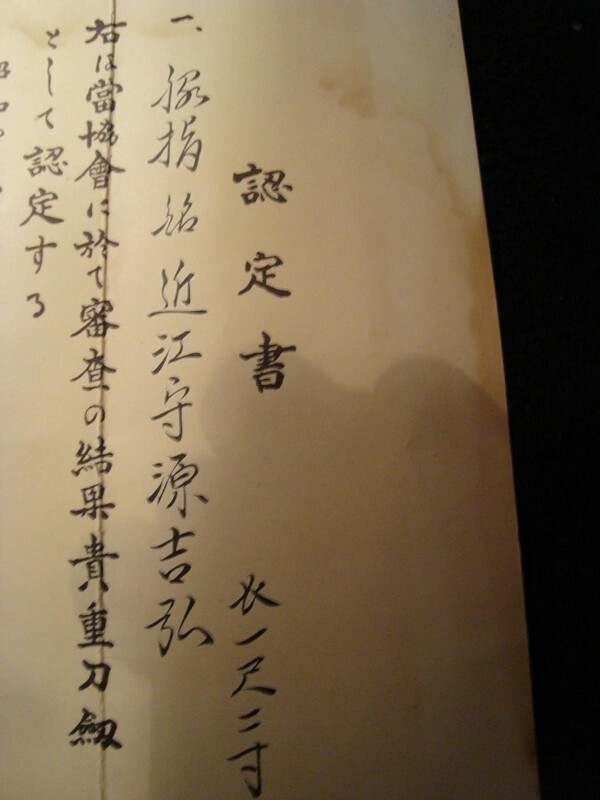 認定書
一、脇指 銘 近江守源吉弘
長一尺二寸
右は當協會に於て審査の結果貴重刀劔
として認定する
昭和